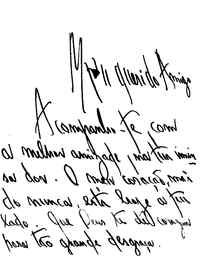 Meu querido Amigo
Acompanho-te com
a melhor amizade, na tua imen
sa dor. O meu coração, mais
do nunca, está hoje a teu
lado. Que Deus te dê coragem
para tão grande desgraça.